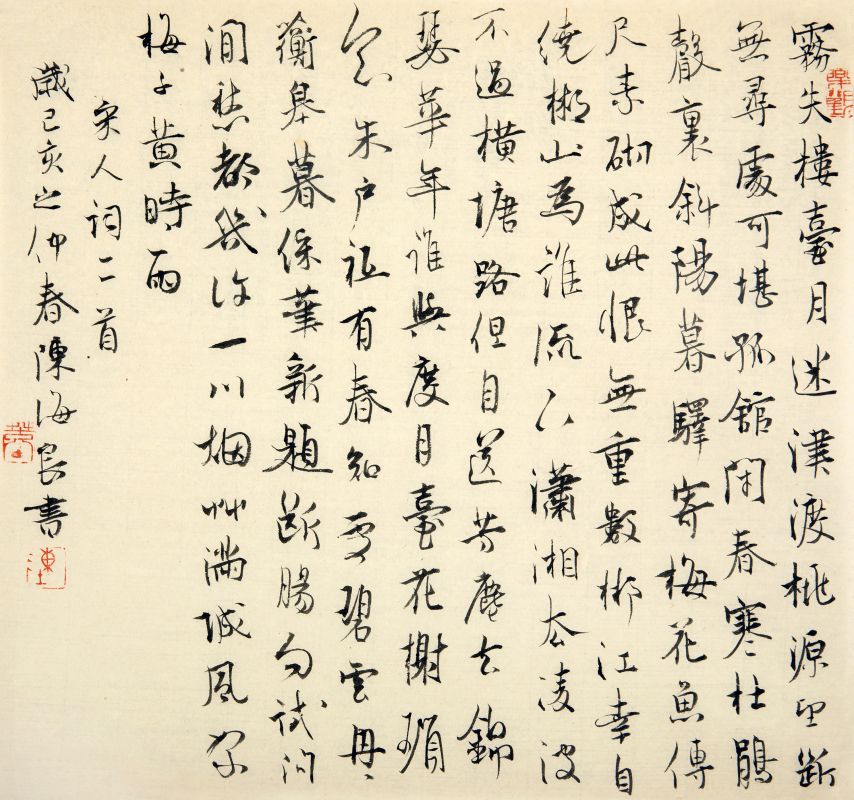 霧失樓臺月迷津渡桃源望斷
無尋處可堪孤館閉春寒杜鵑
聲裏斜陽暮驛寄梅花魚傳
尺素砌成此恨無重數郴江幸自
繞郴山爲誰流下瀟湘去凌波
不過橫塘路但目送芳塵去錦
瑟華年誰與度月臺花榭瑣
窗朱戶祇有春知處碧雲冉〻
蘅皋暮綵筆新題斷腸句試問
閒愁都幾許一川烟艸滿城風絮
梅子黄時雨
宋人詞二首
歲己亥之仲春陳海良書